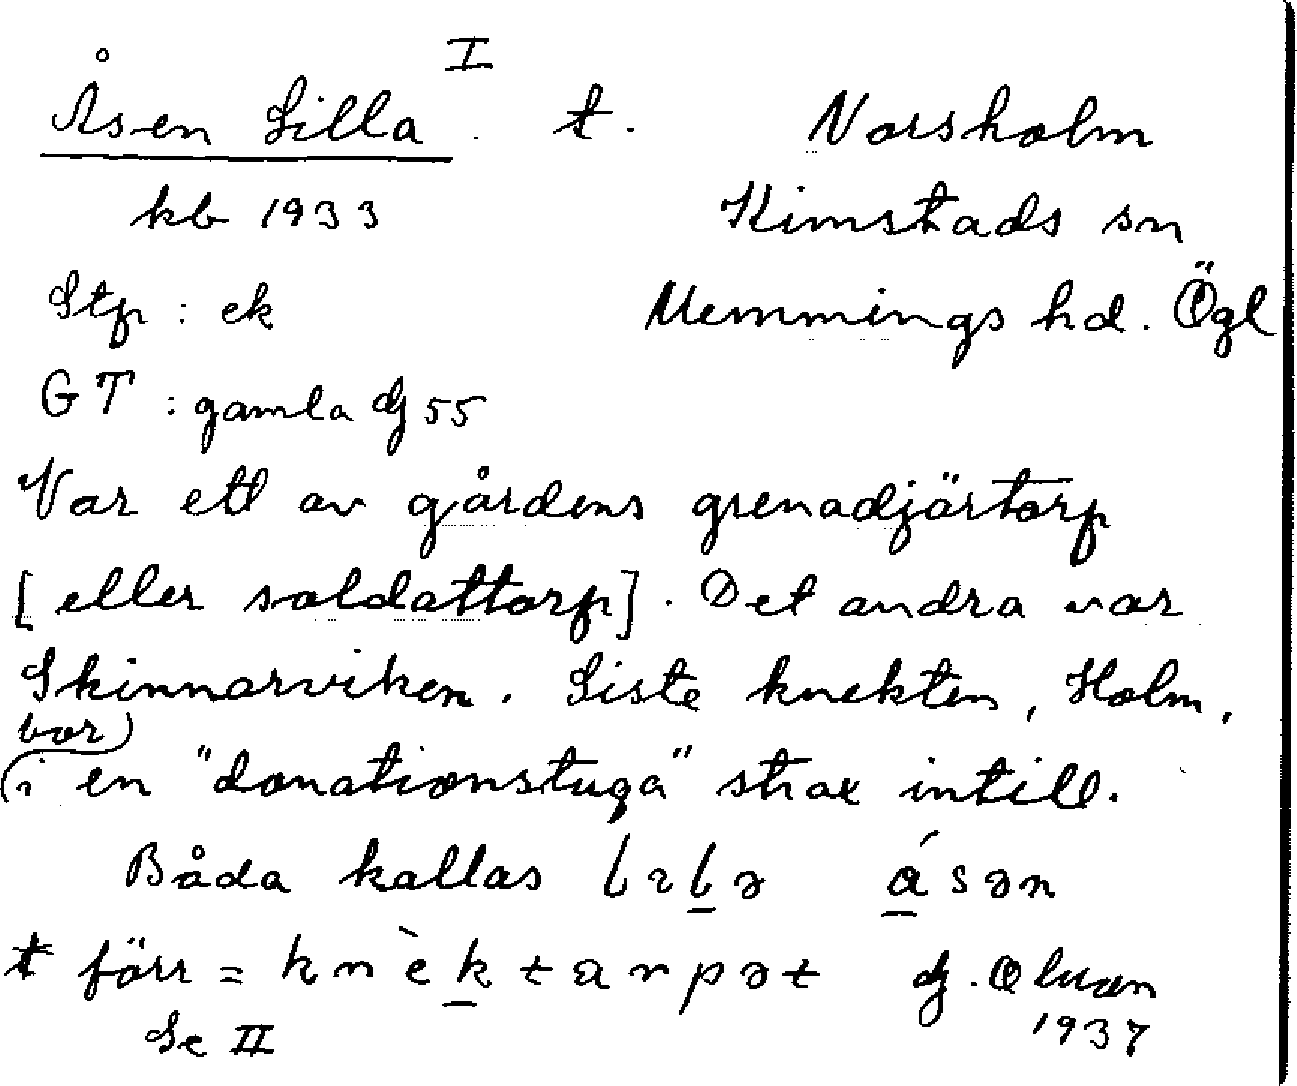 Åsen Lilla I t. Norsholm
kb 1933 Kimstads sn
Stp : ek Memmings hd. Ögl
GT : gamla dj 55
Var ett av gårdens grenadjärtorp
[eller soldattorp]. Det andra var
Skinnarviken. Siste knekten, Holm,
bor
i en "donationstuga" strax intill.
Båda kallas åsən
t förr = knèktarpət dj. Olwon
Se II 1937